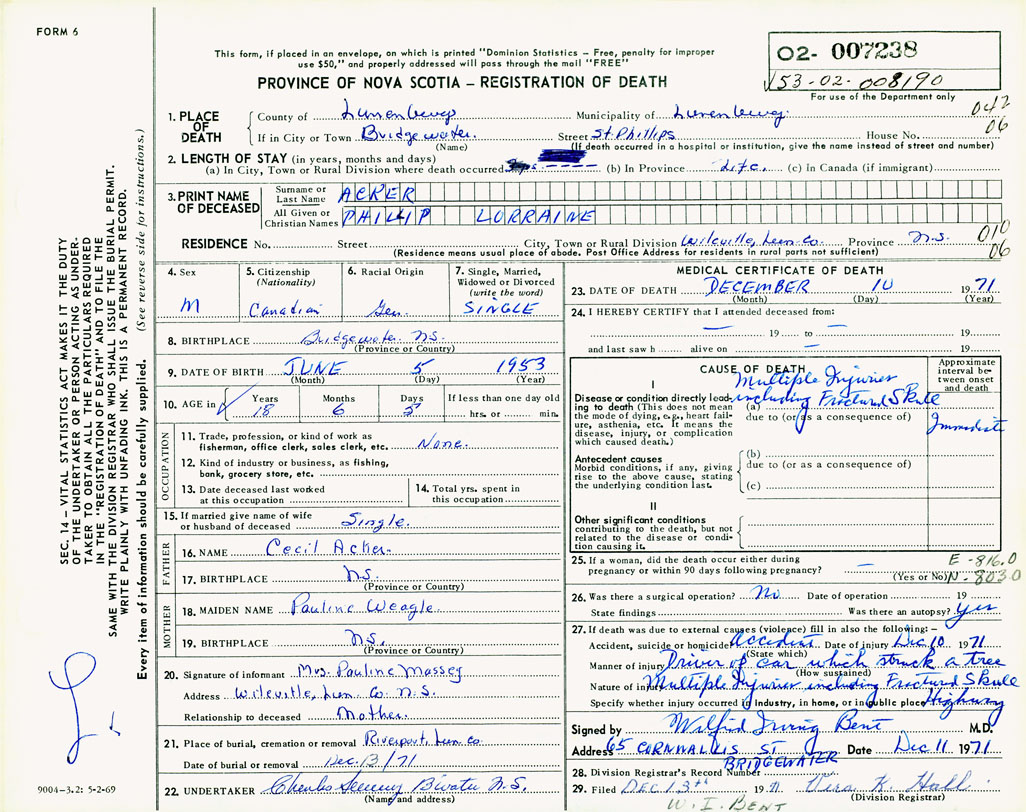 FORM 6
This form, if placed in an envelope, on which is printed "Dominion Statistics – Free, penalty for improper
use $50," and properly addressed will pass through the mail "FREE"
PROVINCE OF NOVA SCOTIA – REGISTRATION OF DEATH
02- 007238
53-02-008190
For use of the Department only
042
06
1. PLACE OF DEATH
County of Lunenburg Municipality of Lunenburg
If in City or Town Bridgewater. Street St. Phillips House No.
(Name) (If death occurred in a hospital or institution, give the name instead of street and number)
2. LENGTH OF STAY (in years, months and days)
(a) In City, Town or Rural Division where death occurred (b) In Province Life. (c) In Canada (if immigrant)
3. PRINT NAME OF DECEASED
Surname or Last Name ACKER
All Given or Christian Names PHILLIP LORRAINE
010
06
RESIDENCE No. Street City, Town or Rural Division Wileville, Lun. Co. Province N.S.
(Residence means usual place of abode. Post Office Address for residents in rural parts not sufficient)
4. Sex M
5. Citizenship (Nationality) Canadian
6. Racial Origin Ger.
7. Single, Married, Widowed or Divorced (write the word) SINGLE
8. BIRTHPLACE Bridgewater N.S.
(Province or Country)
9. DATE OF BIRTH JUNE 5 1953
(Month) (Day) (Year)
10. AGE in Years 18 Months 6 Days If less than one day old hrs. or min.
OCCUPATION
11. Trade, profession, or kind of work as fisherman, office clerk, sales clerk, etc. None.
12. Kind of industry or business, as fishing, bank, grocery store, etc.
13. Date deceased last worked at this occupation
14. Total yrs. spent in this occupation
15. If married give name of wife or husband of deceased Single.
FATHER
16. NAME Cecil Acker.
17. BIRTHPLACE N.S.
(Province or Country)
MOTHER
18. MAIDEN NAME Pauline Weagle.
19. BIRTHPLACE N.S.
(Province or Country)
20. Signature of informant Mrs. Pauline Massey
Address Wileville, Lun. Co. N.S.
Relationship to deceased Mother.
21. Place of burial, cremation or removal Riverport, Lun. Co.
Date of burial or removal Dec. 13/71
22. UNDERTAKER Bwater N.S.
(Name and address)
MEDICAL CERTIFICATE OF DEATH
23. DATE OF DEATH DECEMBER 10 1971
(Month) (Day) (Year)
24. I HEREBY CERTIFY that I attended deceased from:
— 19 to — 19
and last saw h alive on — 19
CAUSE OF DEATH
Approximate interval between onset and death
I
Disease or condition directly leading to death (This does not mean the mode of dying, e.g., heart failure, asthenia, etc. It means the disease, injury, or complication which caused death.)
(a) Multiple Injuries including Fractured Skull
due to (or as a consequence of)
Immediate
Antecedent causes
Morbid conditions, if any, giving rise to the above cause, stating the underlying condition last.
(b)
due to (or as a consequence of)
(c)
II
Other significant conditions contributing to the death, but not related to the disease or condition causing it.
25. If a woman, did the death occur either during pregnancy or within 90 days following pregnancy? —
(Yes or No)
E-816.0
N-803.0
26. Was there a surgical operation? No Date of operation 19
State findings Was there an autopsy? Yes
27. If death was due to external causes (violence) fill in also the following:–
Accident, suicide or homicide Accident Date of injury Dec 10 1971
(State which)
Manner of injury Driver of car which struck a tree
(How sustained)
Nature of injury Multiple Injuries including Fractured Skull
Specify whether injury occurred in industry, in home, or in public place Highway
Signed by Wilfrid Irving Bent M.D.
Address 65 CORNWALLIS ST BRIDGEWATER Date Dec 11 1971
28. Division Registrar's Record Number
29. Filed DEC 13th 1971 Vera K. Hall
(Division Registrar)
W. I. BENT
SEC. 14 – VITAL STATISTICS ACT MAKES IT THE DUTY
OF THE UNDERTAKER OR PERSON ACTING AS UNDER-
TAKER TO OBTAIN ALL THE PARTICULARS REQUIRED
IN THE "REGISTRATION OF DEATH" AND TO FILE THE
SAME WITH THE DIVISION REGISTRAR WHO SHALL ISSUE THE BURIAL PERMIT.
WRITE PLAINLY WITH UNFADING INK. THIS IS A PERMANENT RECORD.
Every item of information should be carefully supplied. (See reverse side for instructions.)
9004-3.2: 5-2-69